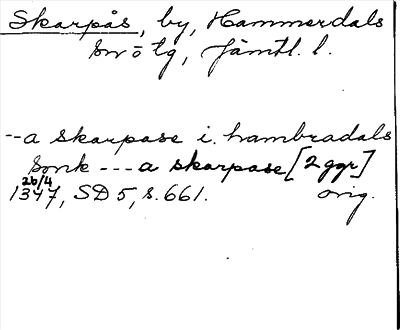 Skarpås, by, Hammerdals
sn o tg, Jämtl. l.
--a skarpase i hambradals
sonk --- a skarpase [2 ggr]
26/4
1347, SD 5, s. 661. orig.